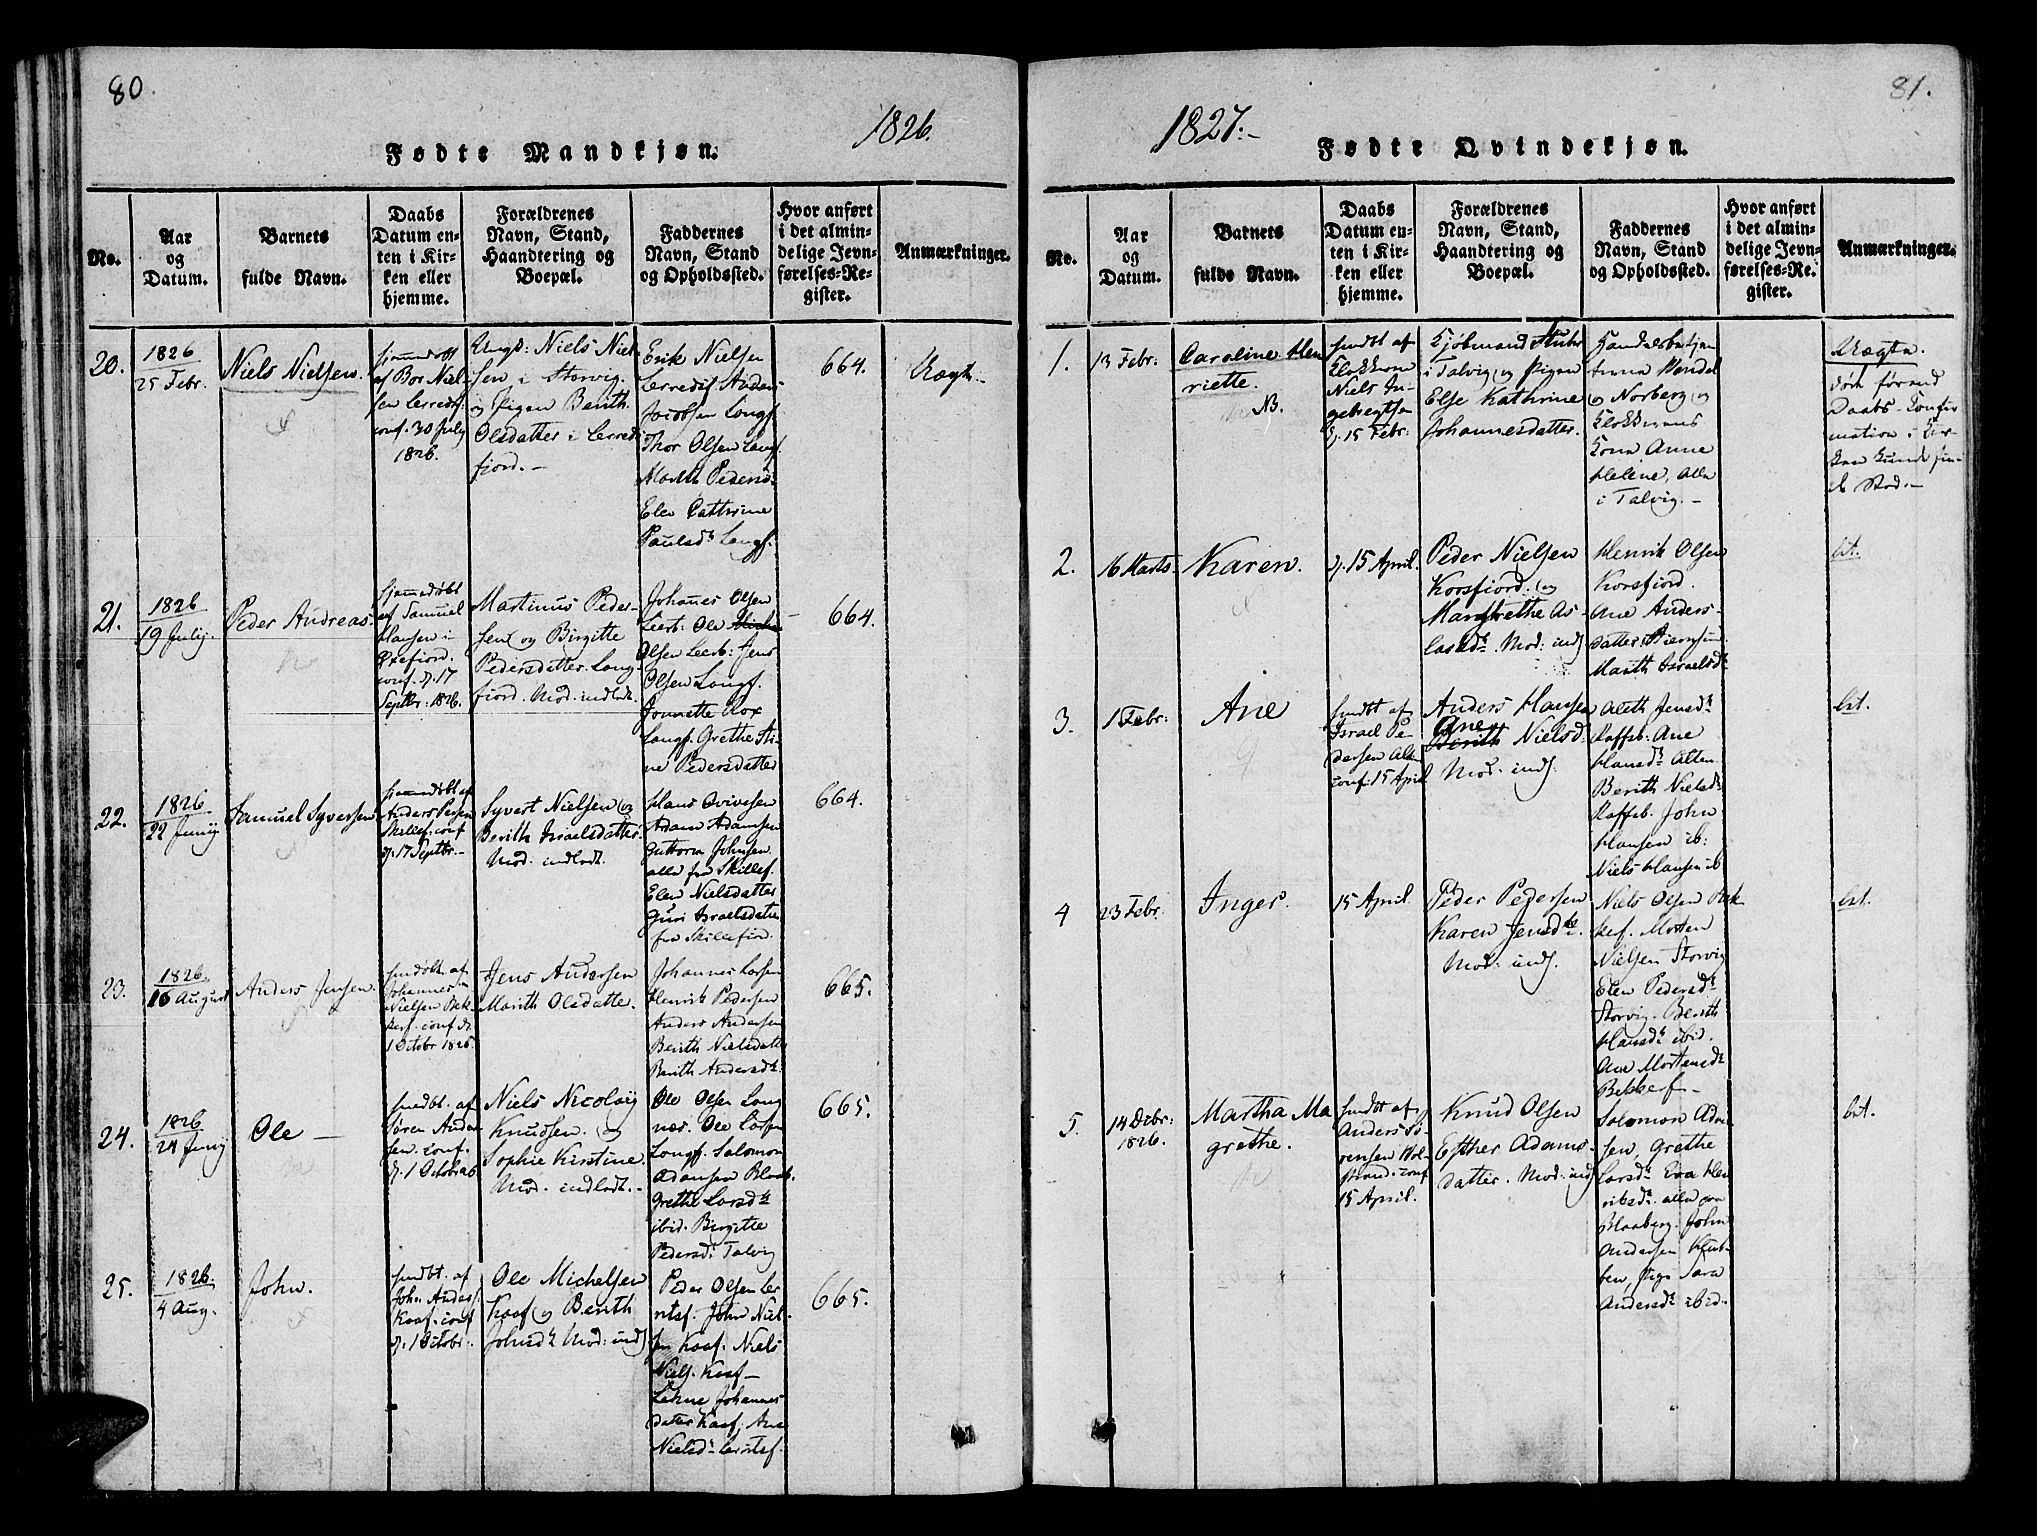 80
1826.
Fødte Mandkjøn.
No.
Aar
og
Datum.
Barnets
fulde Navn.
Daabs
Datum en-
ten i Kir-
ken eller
hjemme.
Forældrenes
Navn, Stand,
Haandtering og
Boepæl.
Faddernes
Navn, Stand
og Opholdssted.
Hvor anført
i det almin-
delige Jevn-
førelses-Re-
gister.
Anmærkninger.
20.
1826
25 Febr.
Niels Nielsen.
hjemmedøbt
af Bor Niel-
sen Lerredsf:
conf. 30 July
1826.
Ungk: Niels Niel-
sen i Storvig.
og Pigen Berith
Olsdatter i Lerreds
fjord. -
Erik Nielsen
Lerredsf Anders
Jacobsen Langf.
Thor Olsen Langf.
Marith Pedersd:
Elen Cathrine
Paulsdr Langf.
664.
Uægte.
21.
1826
19 July.
Peder Andreas
hjemmedøbt
af Samuel
Hansen i
conf. d. 17
Septbr: 1826.
Martinus Peder-
sen og Birgitte
Pedersdatter. Lang-
fjord. Mod. indladt.
Johanes Olsen
Leerb: Ole
Olsen Leerb: Jens
Olsen Langf.
Langf. Grethe Sti-
ne Pedersdatter
664.
22.
1826.
22 Juny
Samuel Syversen
hjemmedøbt af
Skillef. conf
d. 17 Septbr. -
Syvert Nielsen og
Berith Israelsdatter.
Mod. indladt.
Adam Adamsen
Guttorm Johnsen
alle fra Skillef.
Elen Nielsdatter
Guri Israelsdatter
fra Skillefjord.
664.
23.
1826.
16 August
Anders Jensen.
hmdøbt. af
Johannes
Nielsen Bek-
kerf. conf d.
1 Octobr 1826.
Jens Andersen
Marith Olsdatter.
Johannes Larsen
Henrik Pedersen
Anders Andersen
Berith Nielsdatter
Berith Andersdr:
665.
24.
1826
24 Juny
Ole -
hmdbt. af
Søren Ander
sen. conf.
d. 1 Octobr 26
Niels Nicolaij
Knudsen. og
Sophie Kirstine.
Mod. indladt. -
Ole Olsen Lang
næs. Ole Larsen
Langf. Salomon
Adamsen Blaab.
Grethe Larsdr
ibid. Birgitte
Pedersdr Talvig
665.
25.
1826.
4 Aug.
John.
hmdbt. af
John Anders.
Kaaf. conf
d. 1 Octobr.
Ole Michelsen
Kaaf og Berith
Johnsdr Mod: indl
Peder Olsen Ler
retsf. John Niel-
sen Kaaf. Niels
Niels. Kaaf -
Lehne Johannes
datter Kaaf, Ane
Nielsdr Lerretsf.
665.
81.
1827.-
Fødte Qvindekjøn.
No.
Aar
og
Datum.
Barnets
fulde Navn.
Daabs
Datum en-
ten i Kir-
ken eller
hjemme.
Forældrenes
Navn, Stand,
Haandtering og
Boepæl.
Faddernes
Navn, Stand
og Opholdssted.
Hvor anført
i det almin-
delige Jevn-
førelses-Re-
gister.
Anmærkninger.
1.
13 Febr:
Caroline Hen
riette.
NB.
hmdbt af
Klokkeren
Niels In-
gebregtsen
d. 15 Febr:
Kjøbmand
i Talvig og Pigen
Else Kathrine
Johannesdatter.
Handelsbetjen
terne
og Norberg og
Klokkerens
Kona Anne
Helene, alle
i Talvig. -
Uægte.
døde førend
Daabs-Confir
mation i Kir-
ken kunde fin-
de Sted. -
2.
16 Marts.
Karen.
d. 15 April.
Peder Nielsen
Korsfjord. og
Margrethe As-
laksdr. Mod: indl
Henrik Olsen
Korsfjord.
Ane Anders-
datter
Marith Israelsdr
ut.
3.
1 Febr:
Ane
hmdbt af
Israel Pe
dersen Alten
conf: 15 April
Anders Hansen
Ane
Berith Nielsd:
Mod: indl.
Aleth Jensdr
Raffsb. Ane
Hansdr Alten
Berith Nielsdr
Raffsb. John
Hansen ib:
Niels Hansen ib
ut.
4
23 Febr.
Inger.
15 April.
Peder Pedersen
Karen Jensdr.
Mod: indl.
Niels Olsen Bek
kef. Morten
Nielsen Storvig
Elen Pedersdr
Storvig. Berith
Hansdr ibid.
Ane Mortensdr
Bekkerf -
ut.
5.
14 Decbr:
1826.
Martha Ma
grethe.
hmdbt af
Anders Sø
rensen Hol-
strand. conf
15 April.
Knud Olsen
Esther Adams-
datter. Mod: indl
Solomon Adam
sen, Grethe
Larsdr Eva Hen
riksdr. alle paa
Blaaberg. John
Andersen Klub-
ben, Pige Sara
Andersdr ibid.
ut.